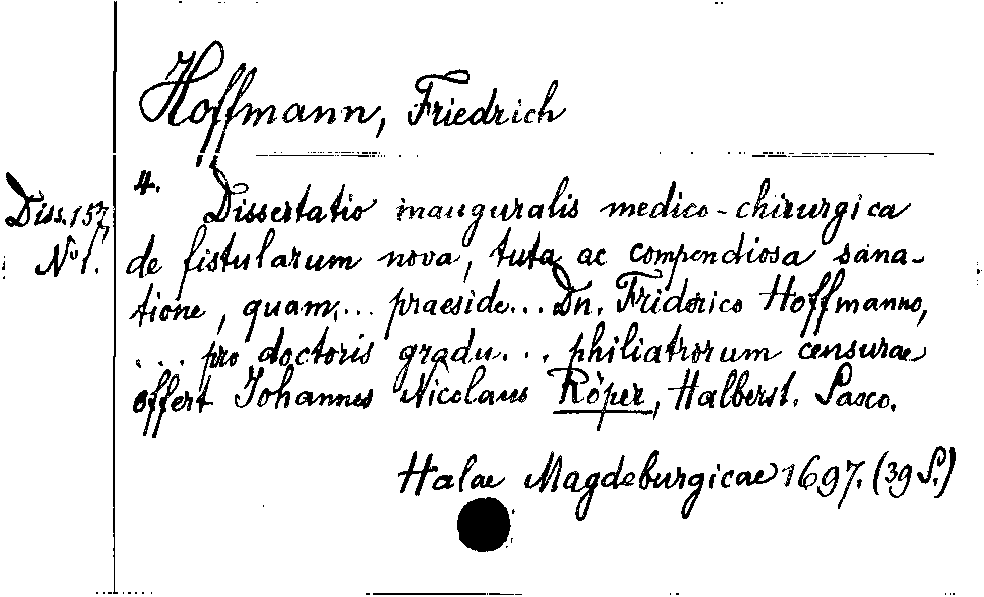 Hoffmann, Friedrich
4.
Diss. 157,
No 1.
Dissertatio inauguralis medico-chirurgica
de fistularum nova, tuta ac compendiosa sana-
tione, quam... praeside... Dn. Friderico Hoffmanno,
... pro doctoris gradu... philiatrorum censurae
offert Johannes Nicolaus Röper, Halberst. Saxo.
Halae Magdeburgicae 1697. (39 S.)